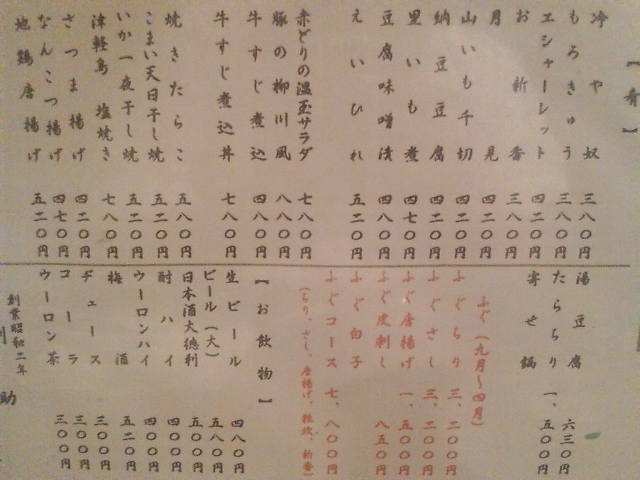 【肴】
冷や奴 三八〇円
もろきゅう 三八〇円
エシャーレット 四二〇円
お新香 三八〇円
月見 四二〇円
山いも千切 四二〇円
納豆豆腐 四二〇円
里いも煮 四七〇円
豆腐味噌漬 四八〇円
えいひれ 五二〇円
赤どりの温玉サラダ 七八〇円
豚の柳川風 八八〇円
牛すじ煮込 四八〇円
牛すじ煮込丼 七八〇円
焼きたらこ 五八〇円
こまい天日干し焼 五二〇円
いか一夜干し焼 五二〇円
津軽鳥 塩焼き 七八〇円
さつま揚げ 四二〇円
なんこつ揚げ 四七〇円
地鶏唐揚げ 五二〇円
湯豆腐 六三〇円
たらちり 一、五〇〇円
寄せ鍋
ふぐ(九月〜四月)
ふぐちり 三、二〇〇円
ふぐさし 三、二〇〇円
ふぐ唐揚げ 一、五〇〇円
ふぐ皮刺し 八五〇円
ふぐ白子
ふぐコース 七、八〇〇円
(ちり、さし、唐揚げ、雑炊、新香)
【お飲物】
生ビール 四八〇円
ビール(大) 五八〇円
日本酒大徳利 五〇〇円
酎ハイ 四〇〇円
ウーロンハイ 四〇〇円
梅酒 五二〇円
ヂュース 三〇〇円
コーラ 三〇〇円
ウーロン茶 三〇〇円
創業昭和二年
助